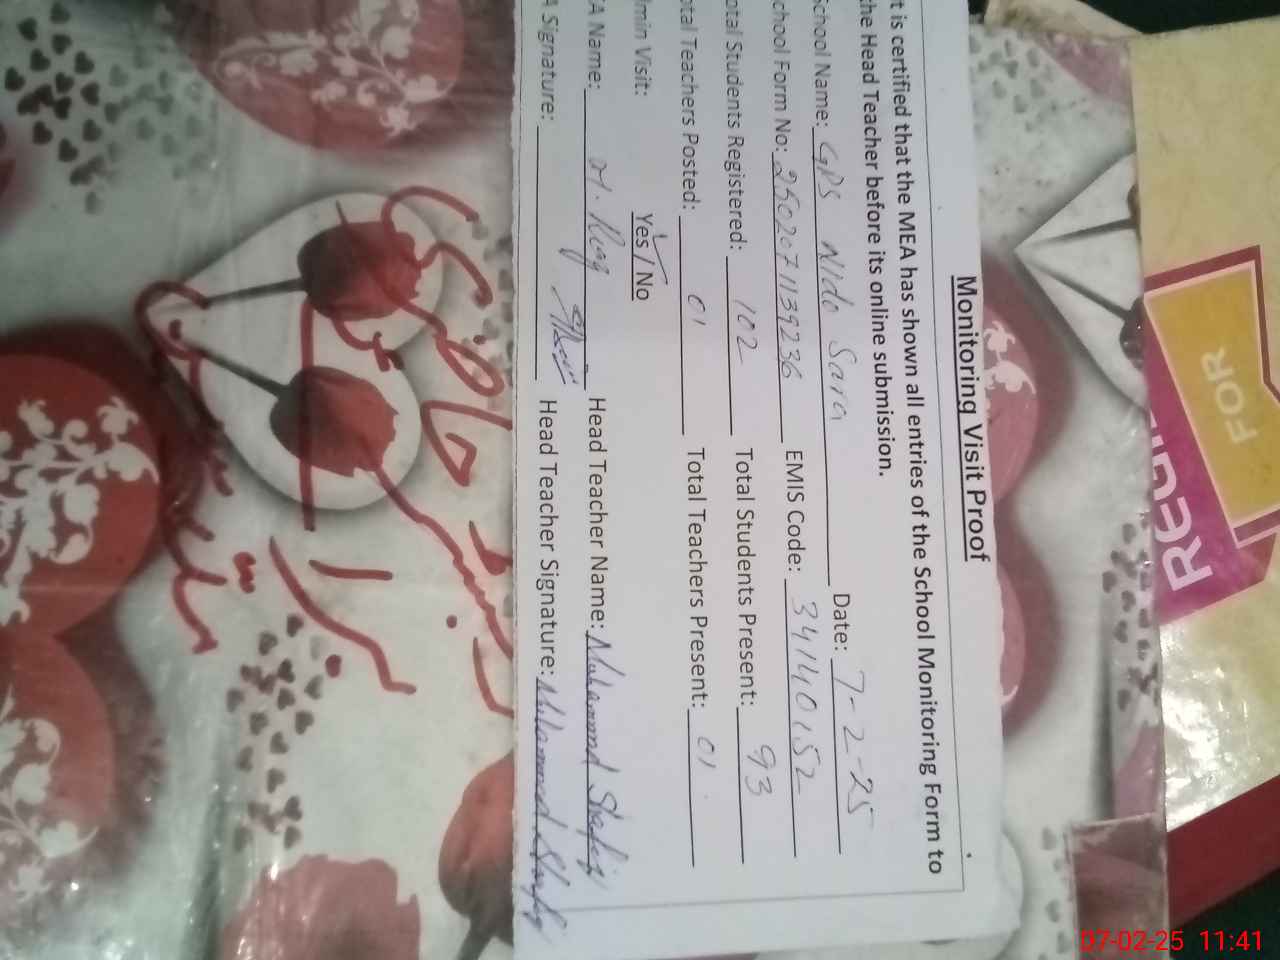 Monitoring Visit Proof
t is certified that the MEA has shown all entries of the School Monitoring Form to
the Head Teacher before its online submission.
School Name: GPS Nido Sara Date: 7-2-25
chool Form No: 2502071139236 EMIS Code: 34140152
otal Students Registered: 102 Total Students Present: 93
otal Teachers Posted: 01 Total Teachers Present: 01
min Visit: Yes / No
A Name: M. Head Teacher Name: Muhammad Shafiq
A Signature: Head Teacher Signature: Muhammad Shafiq
REGI
FOR
07-02-25 11:41